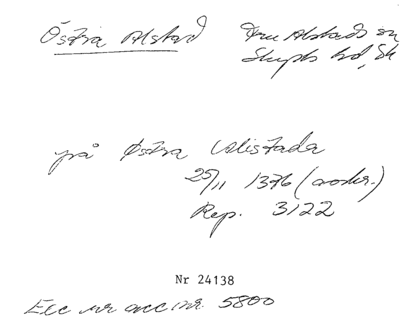 Östra Alstad Fru Alstads sn
Skytts hd, Sk
på Østra Alistada
25/11 1376 (avskr.)
Rep. 3122
Nr 24138
5800